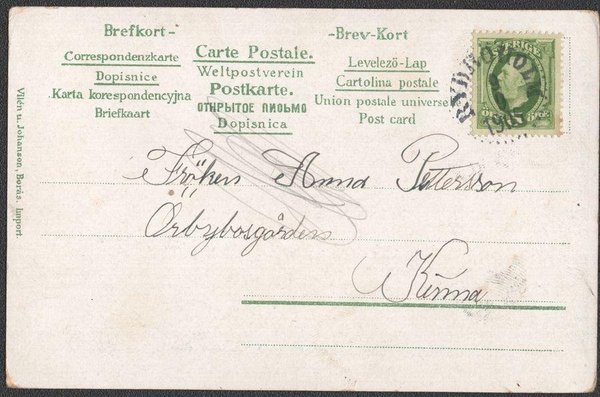 Brefkort-
Correspondenzkarte
Dopisnice
Karta korespondencyjna
Briefkaart
Carte Postale.
Weltpostverein
Postkarte.
ОТКРЫТОЕ ПИСЬМО
Dopisnica
-Brev-Kort
Levelező-Lap
Cartolina postale
Union postale universe
Post card
SVERIGE
Vilén u. Johanson, Borås. Import.
Fröken Anna Pettersson
Örbybosgården
Kinna